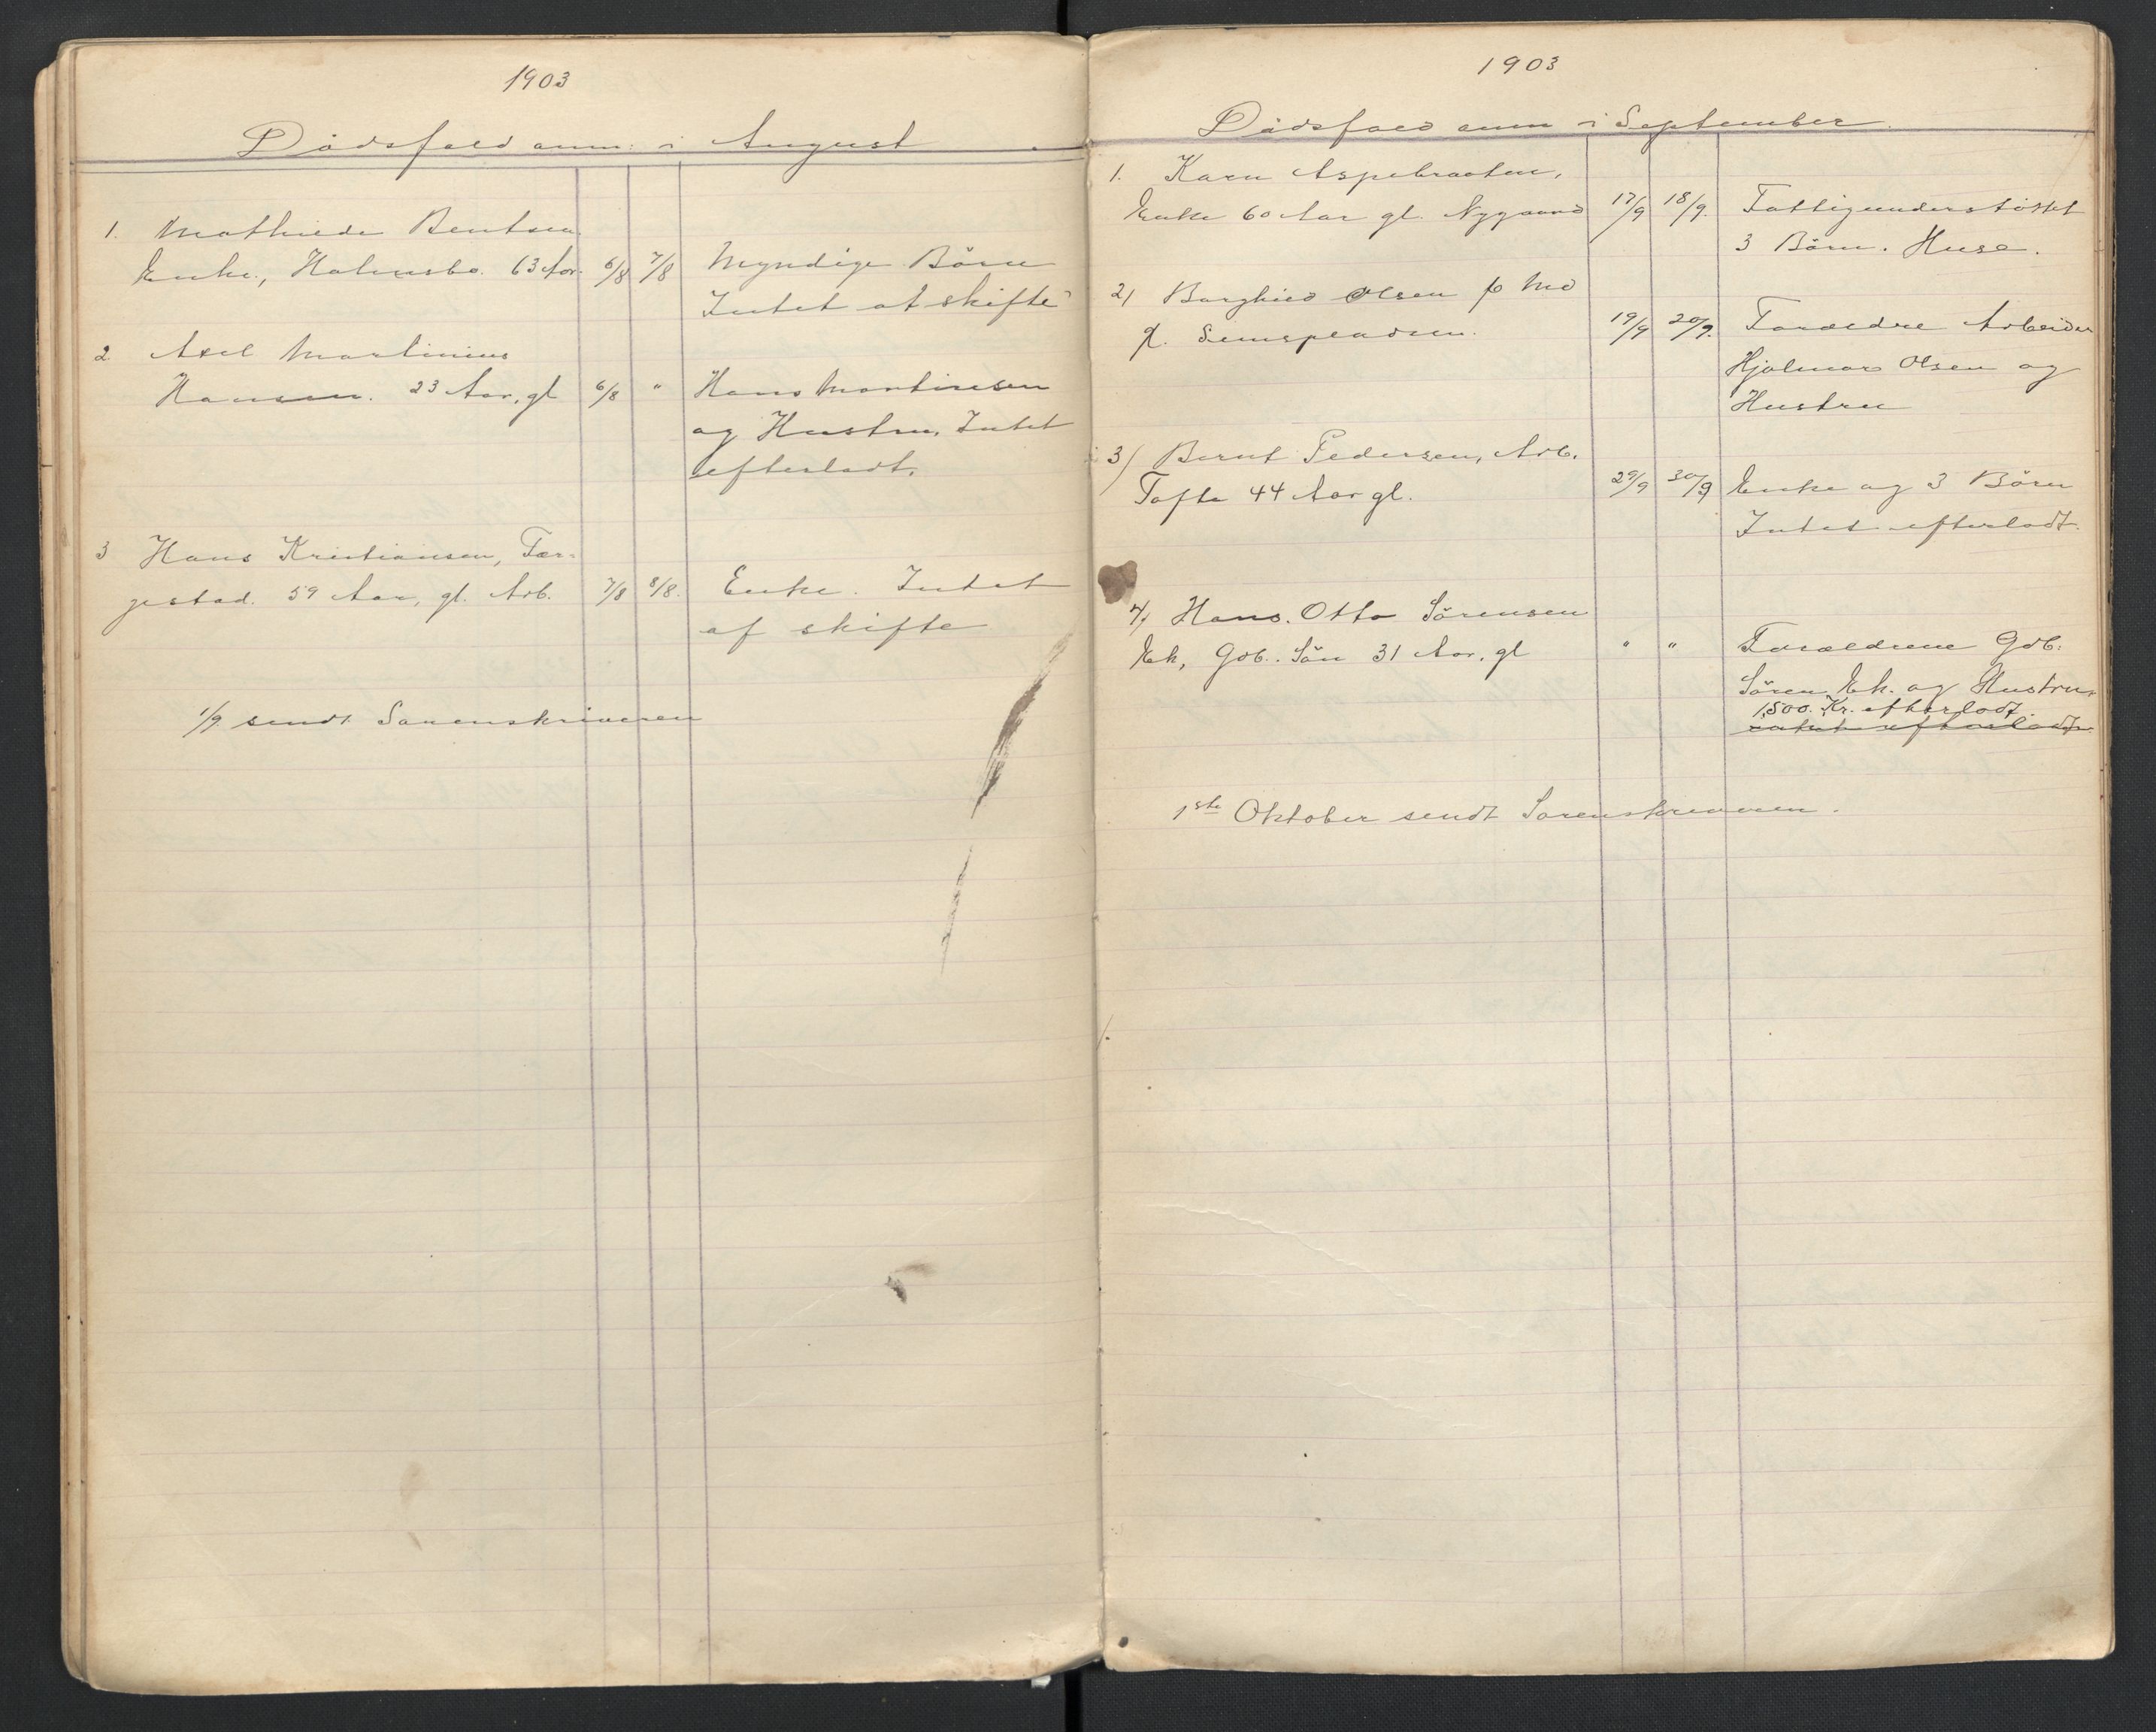 1903
Dödsfald anm. i August
1. Mathilde Bentsen
Enke, Holmsbo. 63 Aar. 6/8 7/8 Myndige Börn
Intet at skifte
2. Axel Martinius
Hansen. 23 Aar, gl 6/8 " Hans Martinsen
og Hustru. Intet
efterladt.
3 Hans Kristiansen, Fær-
gestad. 59 Aar, gl. Arb. 7/8 8/8. Enke. Intet
af skifte
1/9 sendt Sorenskriveren
1903
Dödsfald anm i September
1. Karn Aspebraaten,
Enke 60 Aar gl. Nygaard 17/9 18/9. Fattigunderstöttet
3 Börn. Huse.
2) Borghild Olsen 6 Md
gl. 19/9 20/9. Forældre Arbeider
Hjalmar Olsen og
Hustru
3) Bernt Pedersen, Arb.
Tofte 44 Aar gl. 29/9 30/9 Enke og 3 Börn
Intet efterladt.
4) Hans. Otto Sörensen
Ek, Gdb. Sön 31 Aar. gl " " Forældrene Gdb.
Sören Ek. og Hustru.
1500. Kr. efterladt.
intet efterladt.
1ste Oktober sendt Sorenskriveren.